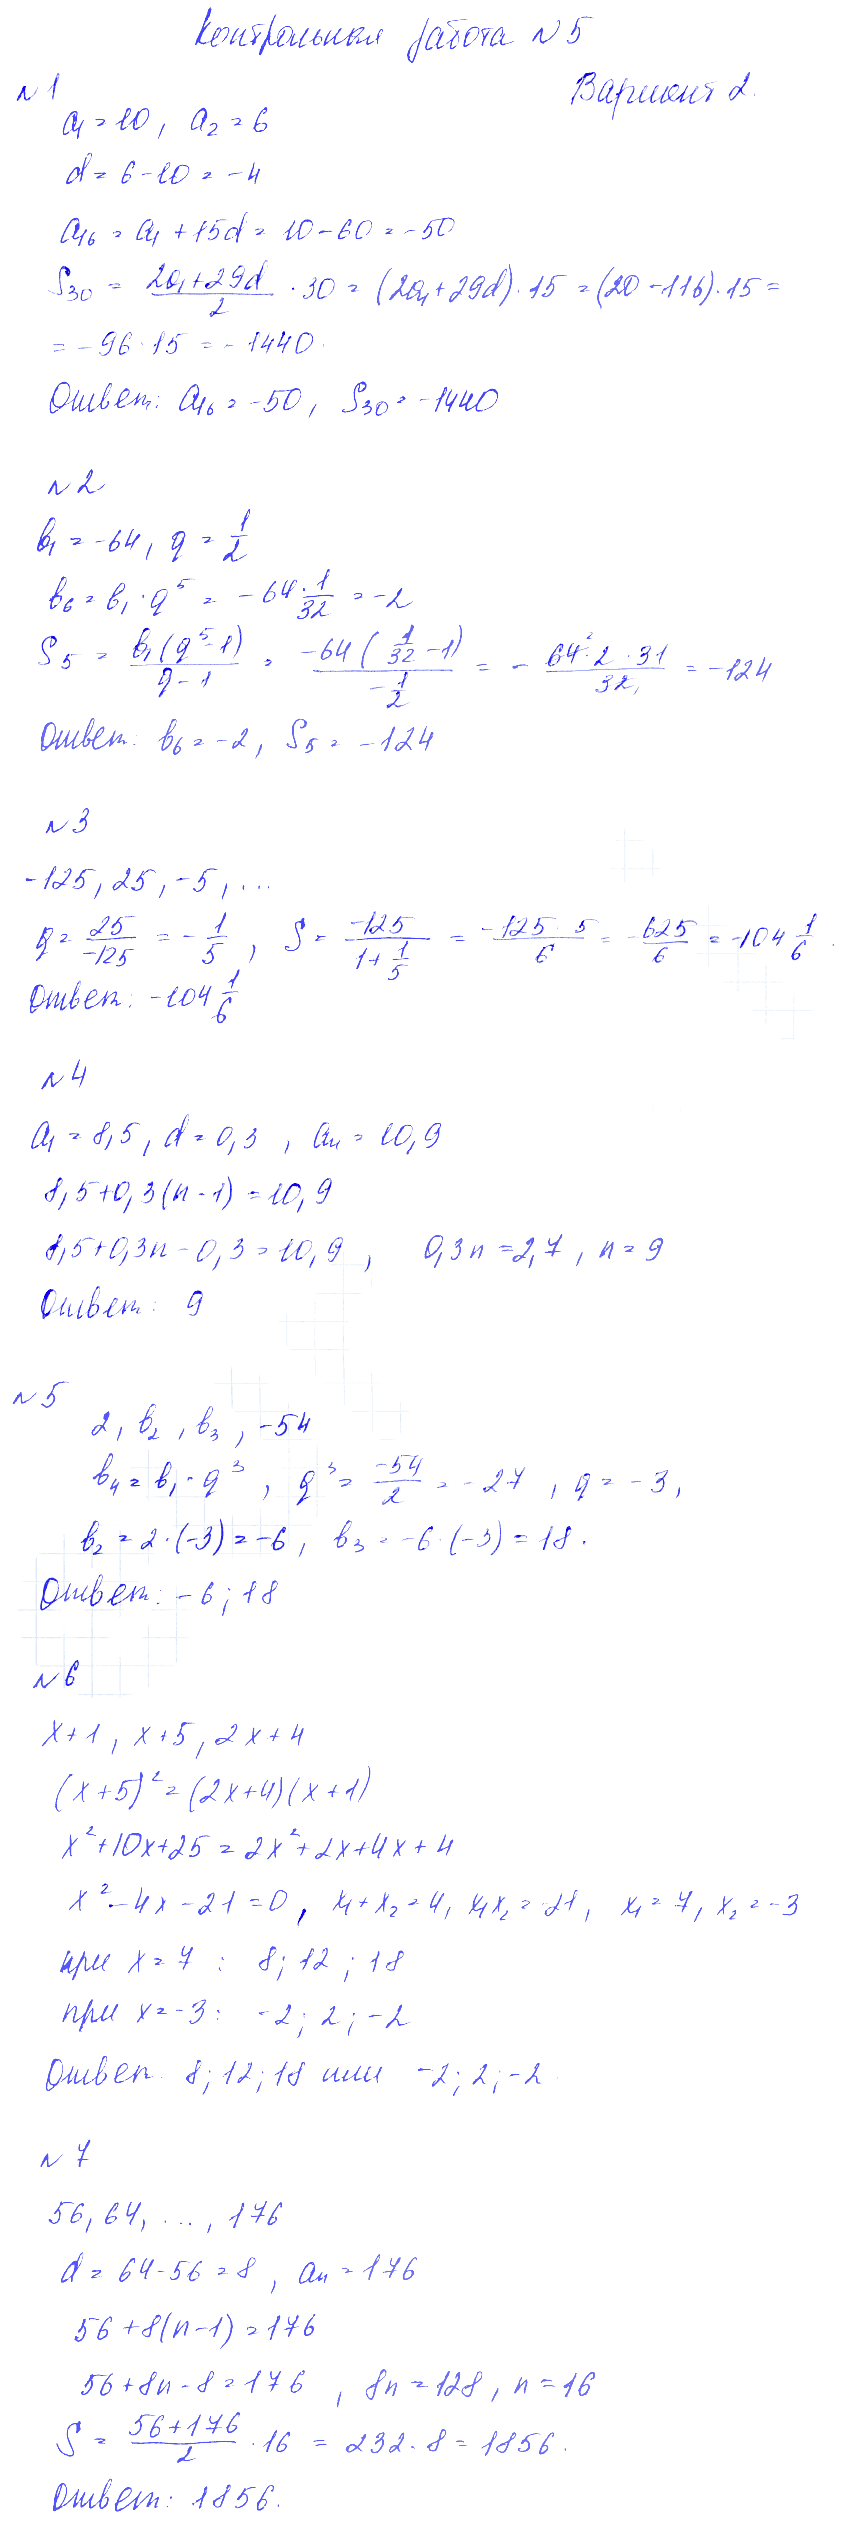 Контрольная работа №5
Вариант 2.
№1
a₁ = 10, a₂ = 6
d = 6 - 10 = -4
a₁₆ = a₁ + 15d = 10 - 60 = -50
S₃₀ = (2a₁ + 29d)/2 · 30 = (2a₁ + 29d) · 15 = (20 - 116) · 15 =
= -96 · 15 = -1440.
Ответ: a₁₆ = -50, S₃₀ = -1440
№2
b₁ = -64, q = 1/2
b₆ = b₁ · q⁵ = -64 · 1/32 = -2
S₅ = b₁(q⁵ - 1)/(q - 1) = -64(1/32 - 1)/(-1/2) = - 64² · 2 · 31/32₁ = -124
Ответ: b₆ = -2, S₅ = -124
№3
-125, 25, -5, ...
q = 25/-125 = -1/5, S = -125/(1 + 1/5) = -125 · 5/6 = -625/6 = -104 1/6.
Ответ: -104 1/6
№4
a₁ = 8,5, d = 0,3, aₙ = 10,9
8,5 + 0,3(n - 1) = 10,9
8,5 + 0,3n - 0,3 = 10,9, 0,3n = 2,7, n = 9
Ответ: 9
№5
2, b₂, b₃, -54
b₄ = b₁ · q³, q³ = -54/2 = -27, q = -3,
b₂ = 2 · (-3) = -6, b₃ = -6 · (-3) = 18.
Ответ: -6; 18
№6
x + 1, x + 5, 2x + 4
(x + 5)² = (2x + 4)(x + 1)
x² + 10x + 25 = 2x² + 2x + 4x + 4
x² - 4x - 21 = 0, x₁ + x₂ = 4, x₁x₂ = -21, x₁ = 7, x₂ = -3
при x = 7 : 8; 12; 18
при x = -3 : -2; 2; -2
Ответ: 8; 12; 18 или -2; 2; -2
№7
56, 64, ..., 176
d = 64 - 56 = 8, aₙ = 176
56 + 8(n - 1) = 176
56 + 8n - 8 = 176, 8n = 128, n = 16
S = (56 + 176)/2 · 16 = 232 · 8 = 1856.
Ответ: 1856.